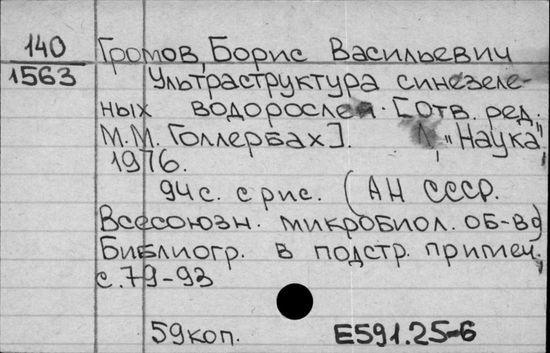 140 Громов, Борис Васильевич
1563 Ультраструктура синезеле-
ных водорослей. [Отв. ред.
М.М. Голлербах]. Л, "Наука",
1976.
94 с. с рис. (АН СССР.
Всесоюзн. микробиол. об-во)
Библиогр. в подстр. примеч.,
с. 79-93
59 коп. Е591.25-6